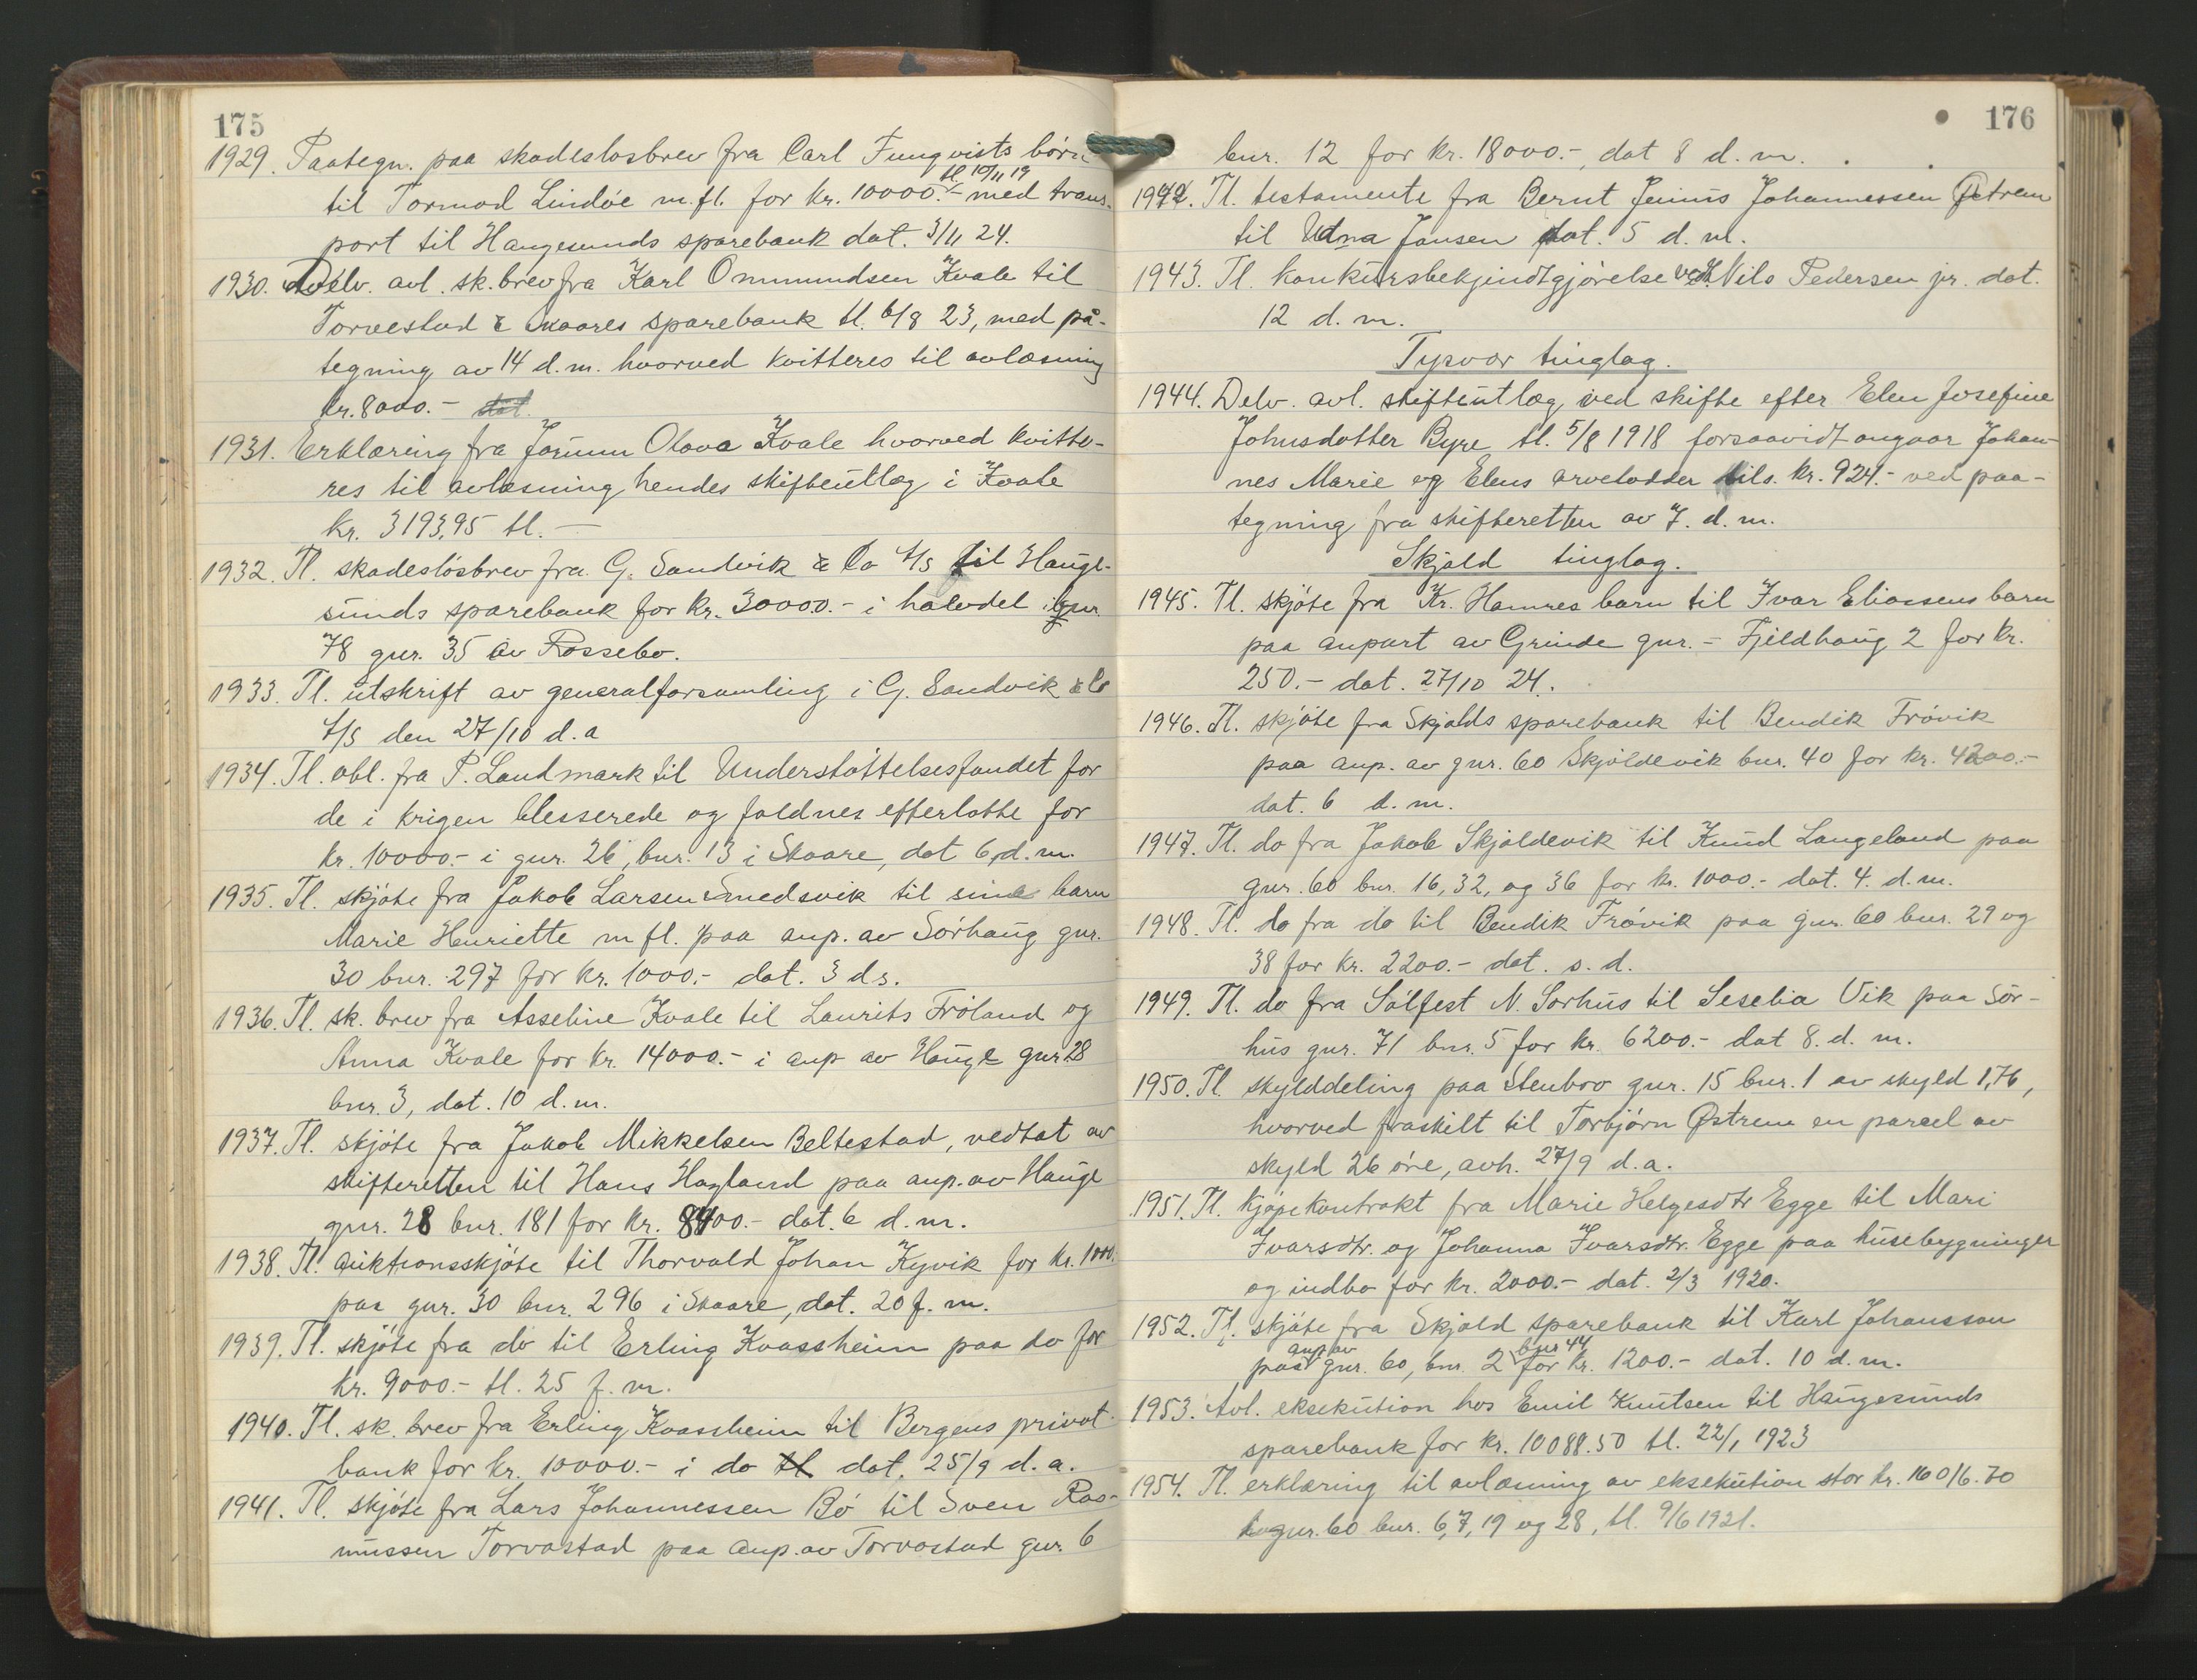 175
1929. Paategn. paa skadesløsbrev fra Carl Fungvists børn
tl. 10/11 19
til Tormod Lindøe m.fl. for kr. 10000.- med trans-
port til Haugesunds sparebank dat. 3/11 24.
1930. Delv. avl. sk.brev fra Karl Ommundsen Kvale til
Torvestad & Skaares sparebank tl. 6/8 23, med på-
tegning av 14 d.m. hvorved kvitteres til avlæsning
kr. 8000.- dat.
1931. Erklæring fra Jorunn Olava Kvale hvorved kvitte-
res til avlæsning hendes skifteutlæg i Kvale
kr. 3193,95 tl. -
1932. Tl. skadesløsbrev fra G. Sandvik & Co A/S til Hauge-
sunds sparebank for kr. 30000.- i halvdel i gnr.
78 gnr. 35 av Rossebø.
1933. Tl. utskrift av generalforsamling i G. Sandvik & Co
A/S den 27/10 d.a
1934. Tl. obl. fra P. Landmark til Understøttelsesfondet for
de i krigen blesserede og faldnes efterlatte for
kr. 10000.- i gnr. 26, bnr. 13 i Skaare, dat 6 d.m.
1935. Tl. skjøte fra Jakob Larsen Smedsvik til sine barn
Marie Henriette m fl. paa anp. av Sørhaug gnr.
30 bnr. 297 for kr. 1000.- dat. 3 ds.
1936. Tl. sk. brev fra Asseline Kvale til Laurits Frøland og
Anna Kvale for kr. 14000.- i anp av Hauge gnr 28
bnr. 3, dat. 10 d.m.
1937. Tl. skjøte fra Jakob Mikkelsen Beltestad, vedtat av
skifteretten til Hans Hagland paa anp. av Hauge
gnr. 28 bnr. 181 for kr. 8400.- dat. 6 d.m.
1938. Tl. auktionsskjøte til Thorvald Johan Kyvik for kr. 1000.
paa gnr. 30 bnr. 296 i Skaare, dat. 20 f.m.
1939. Tl. skjøte fra do til Erling Kvassheim paa do for
kr. 9000.- tl. 25 f.m.
1940. Tl. sk. brev fra Erling Kvassheim til Bergens privat
bank for kr. 10000.- i do tl dat. 25/9 d.a.
1941. Tl. skjøte fra Lars Johannessen Bø til Sven Ras-
mussen Torvastad paa anp. av Torvastad gnr. 6
176
bnr. 12 for kr. 18000.-, dat 8 d.m.
1942. Tl. testamente fra Bernt Jenius Johannessen Østrem
til Edna Jansen dat. 5 d.m.
1943. Tl. konkursbekjendtgjørelse ved Nils Pedersen jr. dat.
12 d.m.
Tysvær tinglag.
1944. Delv. avl. skifteutlæg ved skifte efter Elen Josefine
Johnsdotter Byre tl. 5/8 1918 forsaavidt angaar Johan-
nes Marie og Elens arvelodder tils. kr. 924.- ved paa-
tegning fra skifteretten av 7. d.m.
Skjold tinglag.
1945. Tl. skjøte fra Kr. Hamres barn til Ivar Eliassens barn
paa anpart av Grinde gnr. - Fjeldhaug 2 for kr.
250.- dat. 27/10 24.
1946. Tl. skjøte fra Skjolds sparebank til Bendik Frøvik
paa anp. av gnr. 60 Skjoldevik bnr. 40 for kr. 4200.-
dat. 6 d.m.
1947. Tl. do fra Jakob Skjoldevik til Knud Langeland paa
gnr. 60 bnr. 16, 32, og 36 for kr. 1000.- dat. 4. d.m.
1948. Tl. do fra do til Bendik Frøvik paa gnr. 60 bnr. 29 og
38 for kr. 2200.- dat. s.d.
1949. Tl. do fra Sølfest N. Sørhus til Seselia Vik paa Sør-
hus gnr. 71 bnr. 5 for kr. 6200.- dat 8. d. m.
1950. Tl. skylddeling paa Stenbro gnr. 15 bnr. 1 av skyld 1,76,
hvorved fraskilt til Torbjørn Østrem en parcel av
skyld 26 øre, avh. 27/9 d.a.
1951. Tl. kjøpekontrakt fra Marie Helgesdtr Egge til Mari
Ivarsdtr. og Johanna Ivarsdtr. Egge paa husebygninger
og indbo for kr. 2000.- dat. 2/3 1920.
1952. Tl. skjøte fra Skjold sparebank til Karl Johansson
anp av bnr 44
paa gnr. 60, bnr. 2 for kr. 1200.- dat. 10 d.m.
1953. Avl. eksekution hos Emil Knutsen til Haugesunds
sparebank for kr. 10088.50 tl. 22/1 1923
1954. Tl. erklæring til avlæsning av eksekution stor kr. 16016.70
i gnr. 60 bnr. 6, 7, 19 og 28, tl. 9/6 1921.